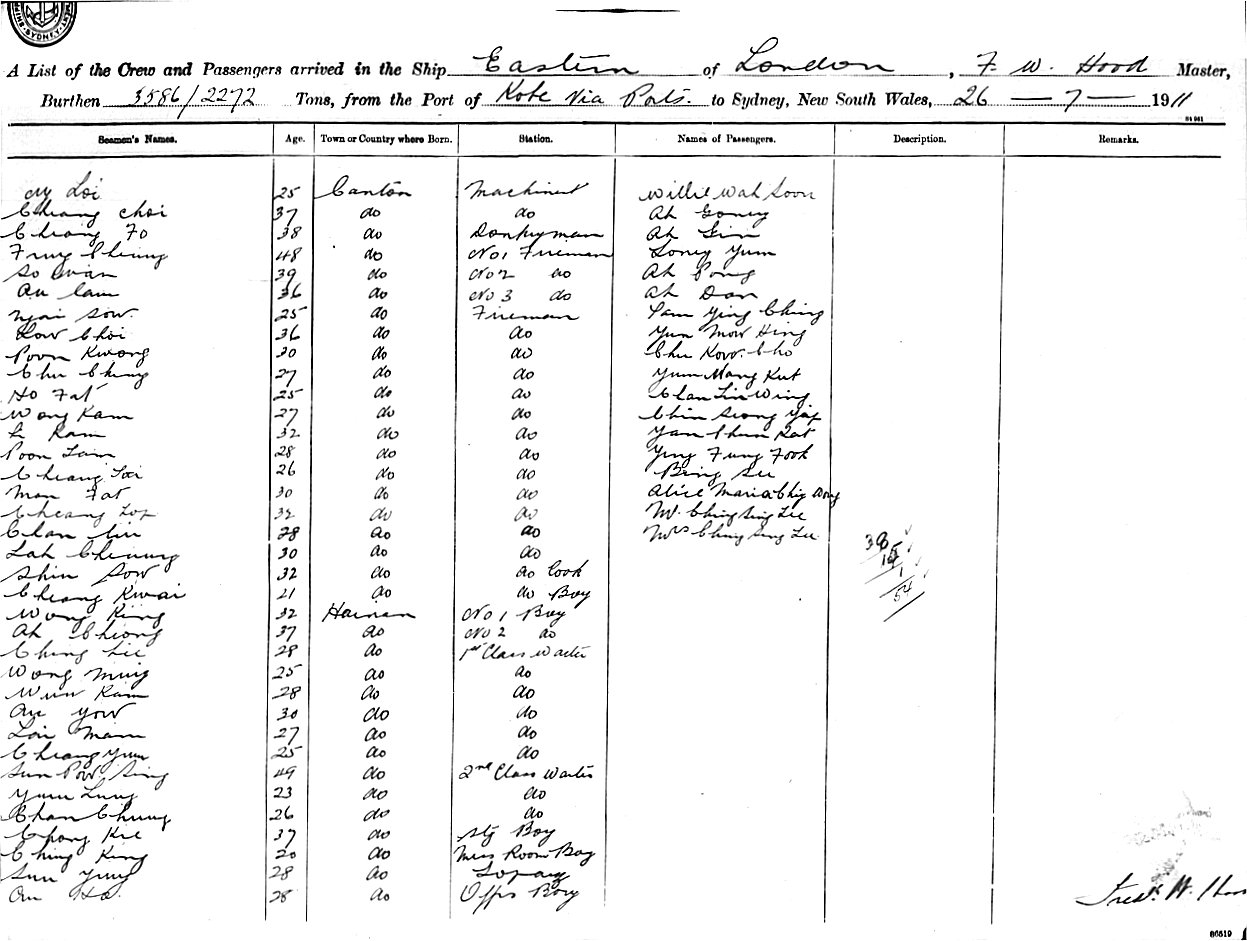 SYDNEY
A List of the Crew and Passengers arrived in the Ship Eastern of London, F. W. Hood Master,
Burthen 3586/2272 Tons, from the Port of Kobe Via Ports. to Sydney, New South Wales, 26 — 7 — 1911
Seamen's Names. Age. Town or Country where Born. Station. Names of Passengers. Description. Remarks.
Loi 25 Canton Machinist Willie Wah Soon
Cheang Choi 37 do do Ah Goney
Cheong Fo 38 do Donkeyman Ah Gin
Fung Cheung 48 do No 1 Fireman Loney Yum
So Wan 39 do No 2 do Ah Pong
Au Lam 36 do No 3 do Ah Dan
Ngai Sow 25 do Fireman Lam Ying Ching
Low Choi 36 do do Yun Mow Hing
Poon Kwong 30 do do Chu Kow Cho
Chu Chung 27 do do Yum Mang Kut
Ho Fat 25 do do Chan Lin Wing
Wong Kam 27 do do Chin Seong Yap
Li Kam 32 do do Yan Chun Kat
Poon Lam 28 do do Ying Fung Fook
Cheang Loi 26 do do Bing See
Man Fat 30 do do Alice Maria Chig Wong
Cheang Lop 32 do do Mr. Ching Sing Lee
Chan Liu 28 do do Mrs Ching Sing Lee
Lah Cheung 30 do do 38
Shin Sow 32 do do Cook 15 1
Cheang Kwai 21 do do Boy 54
Wong King 32 Hainan No 1 Boy
Ah Cheong 37 do No 2 do
Ching Lee 28 do 1st Class Waiter
Wong Ming 25 do do
Wun Kam 28 do do
Au Yow 30 do do
Loi Mam 27 do do
Cheang Yum 25 do do
Sun Pow Sing 49 do 2nd Class Waiter
Yum Lung 23 do do
Chan Chung 26 do do
Chong Kee 37 do Stg Boy
Ching King 20 do Mess Room Boy
Sun Yung 28 do
Au Ho. 28 do Offrs Boy
Fredk. W. Hood
86519